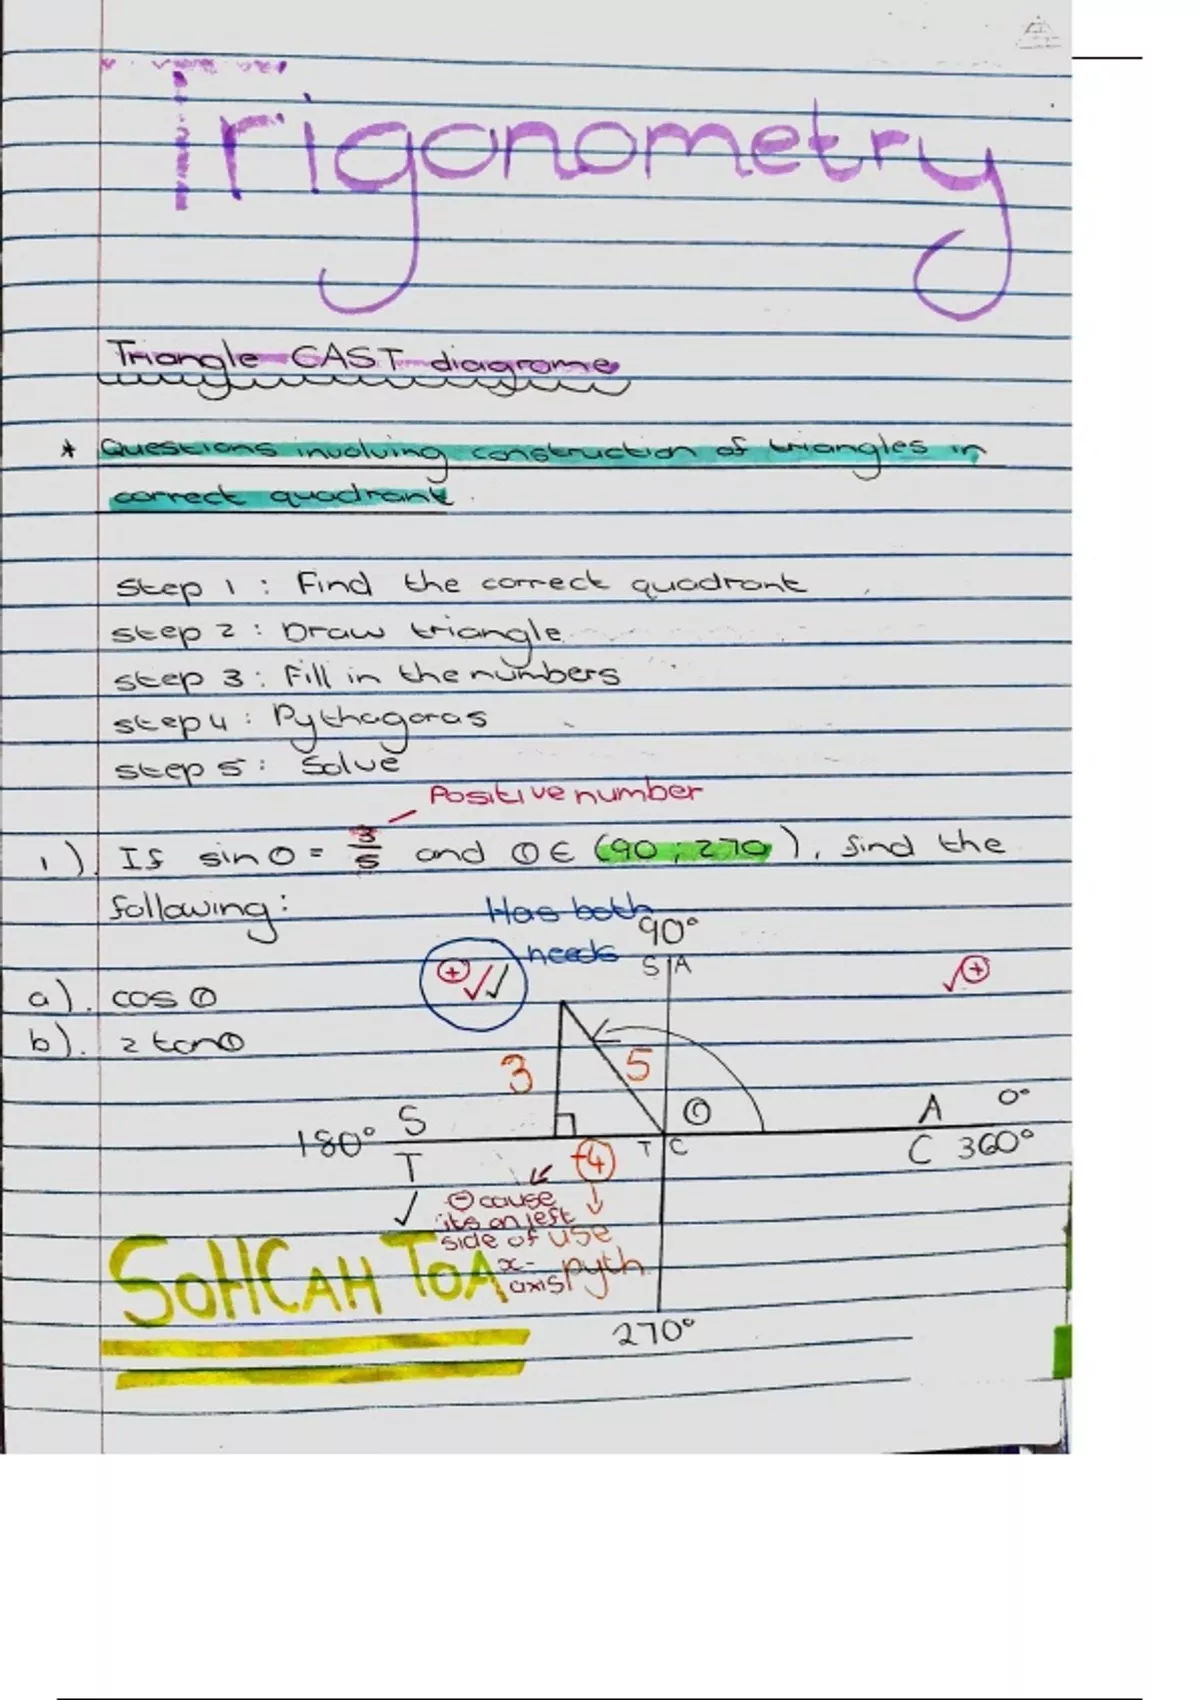 Trigonometry
Triangle CAST diagrame
* Questions involving construction of triangles in
correct quadrant.
Step 1 : Find the correct quadrant
step 2 : Draw triangle
step 3 : Fill in the numbers
step 4 : Pythagoras
step 5 : Solve
Positive number
1). If sin θ = 3/5 and θ ∈ (90 ; 270), find the
following:
Has both
needs
90°
S A
+ ✓✓
✓ +
a). cos θ
b). 2 tan θ
3
5
θ
180°
S
T
✓
T C
A 0°
C 360°
-4
⊖ cause
its on left
side of
x-
axis
use
pyth
SOHCAHTOA
270°